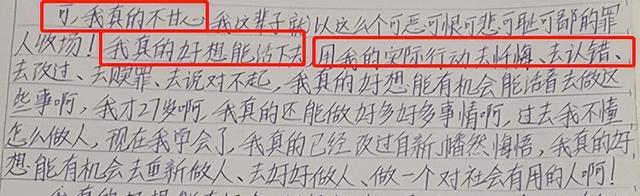 可,我真的不甘心,我这辈子就以这么个可恶可恨可悲可耻可鄙的罪
人收场!我真的好想能活下去,用我的实际行动去忏悔、去认错、
去改过、去赎罪、去说对不起,我真的好想能有机会能活着去做这
些事啊,我才27岁啊,我真的还能做好多好多事情啊,过去我不懂
怎么做人,现在我学会了,我真的已经改过自新、幡然悔悟,我真的好
想能有机会去重新做人、去好好做人、做一个对社会有用的人啊!